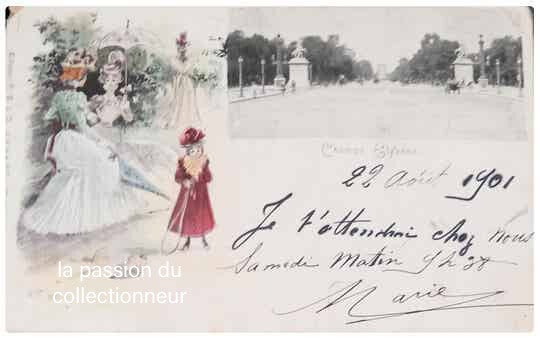 Champs Elysées
22 Août 1901
Je t'attendrai chez nous
Samedi Matin 9h 30
Marie
la passion du
collectionneur